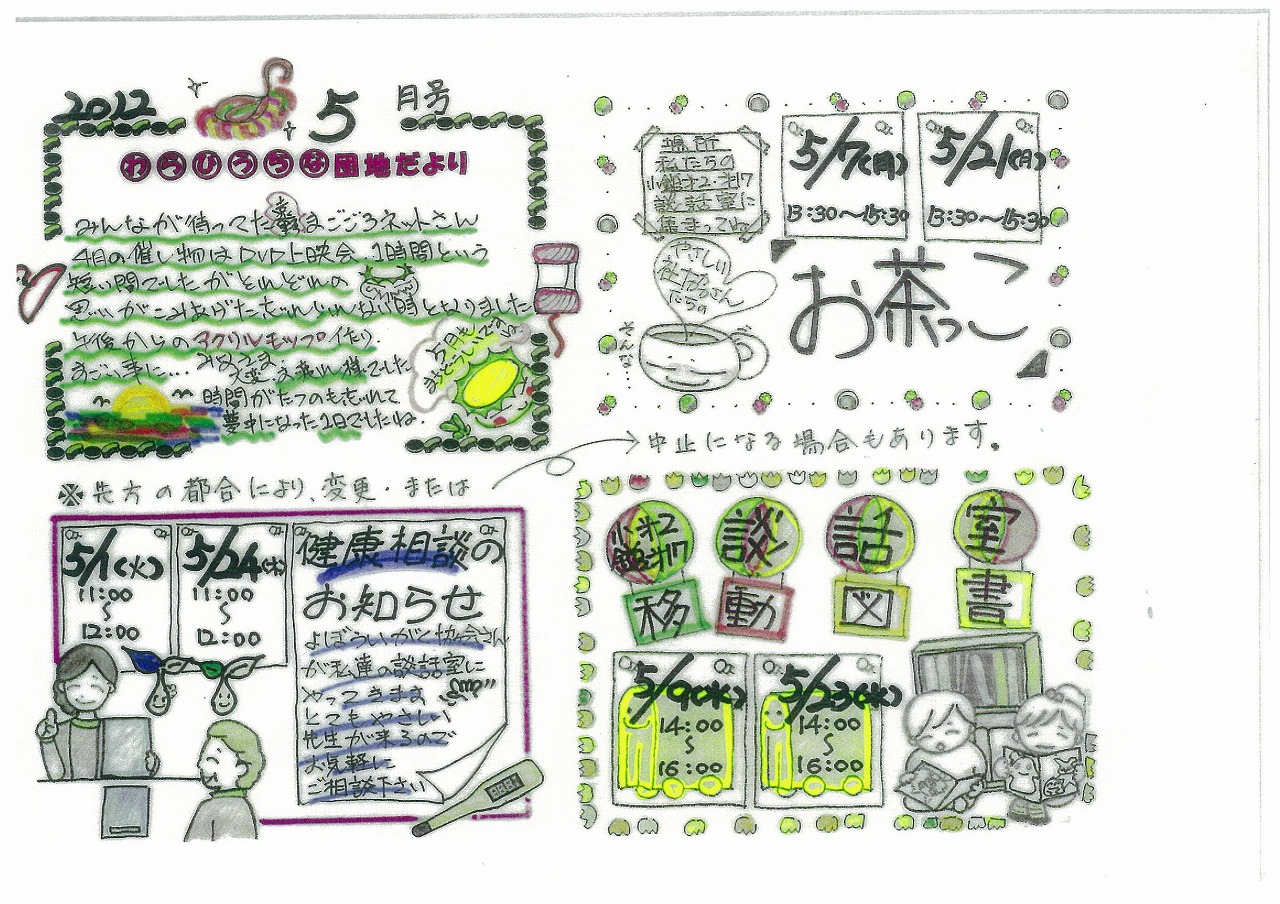 2012 5月号
わらびっこちな団地だより
みんなが待ってたまごころネットさん
4月の催し物はDVD上映会、1時間という
短い間でしたがとれどれの
思いがこみあげた忘れられない時となりました
午後からのアクリルモップ作り
すごい事に…みなさま
大変お疲れ様でした
時間がたつのも忘れて
夢中になった1日でしたね。
場所
私たちの
談話室に
集まってね
5/7(月)
13:30〜15:30
5/21(月)
13:30〜15:30
やさしい
たちの
そんな…
お茶っこ
※先方の都合により、変更・または
中止になる場合もあります。
5/1(火)
11:00
〜
12:00
5/24(木)
11:00
〜
12:00
健康相談の
お知らせ
よぼういがく協会さん
が私達の談話室に
やってきます
とてもやさしい
先生が来るので
お気軽に
ご相談下さい
談話室
移動図書
5/9(水)
14:00
〜
16:00
5/23(水)
14:00
〜
16:00